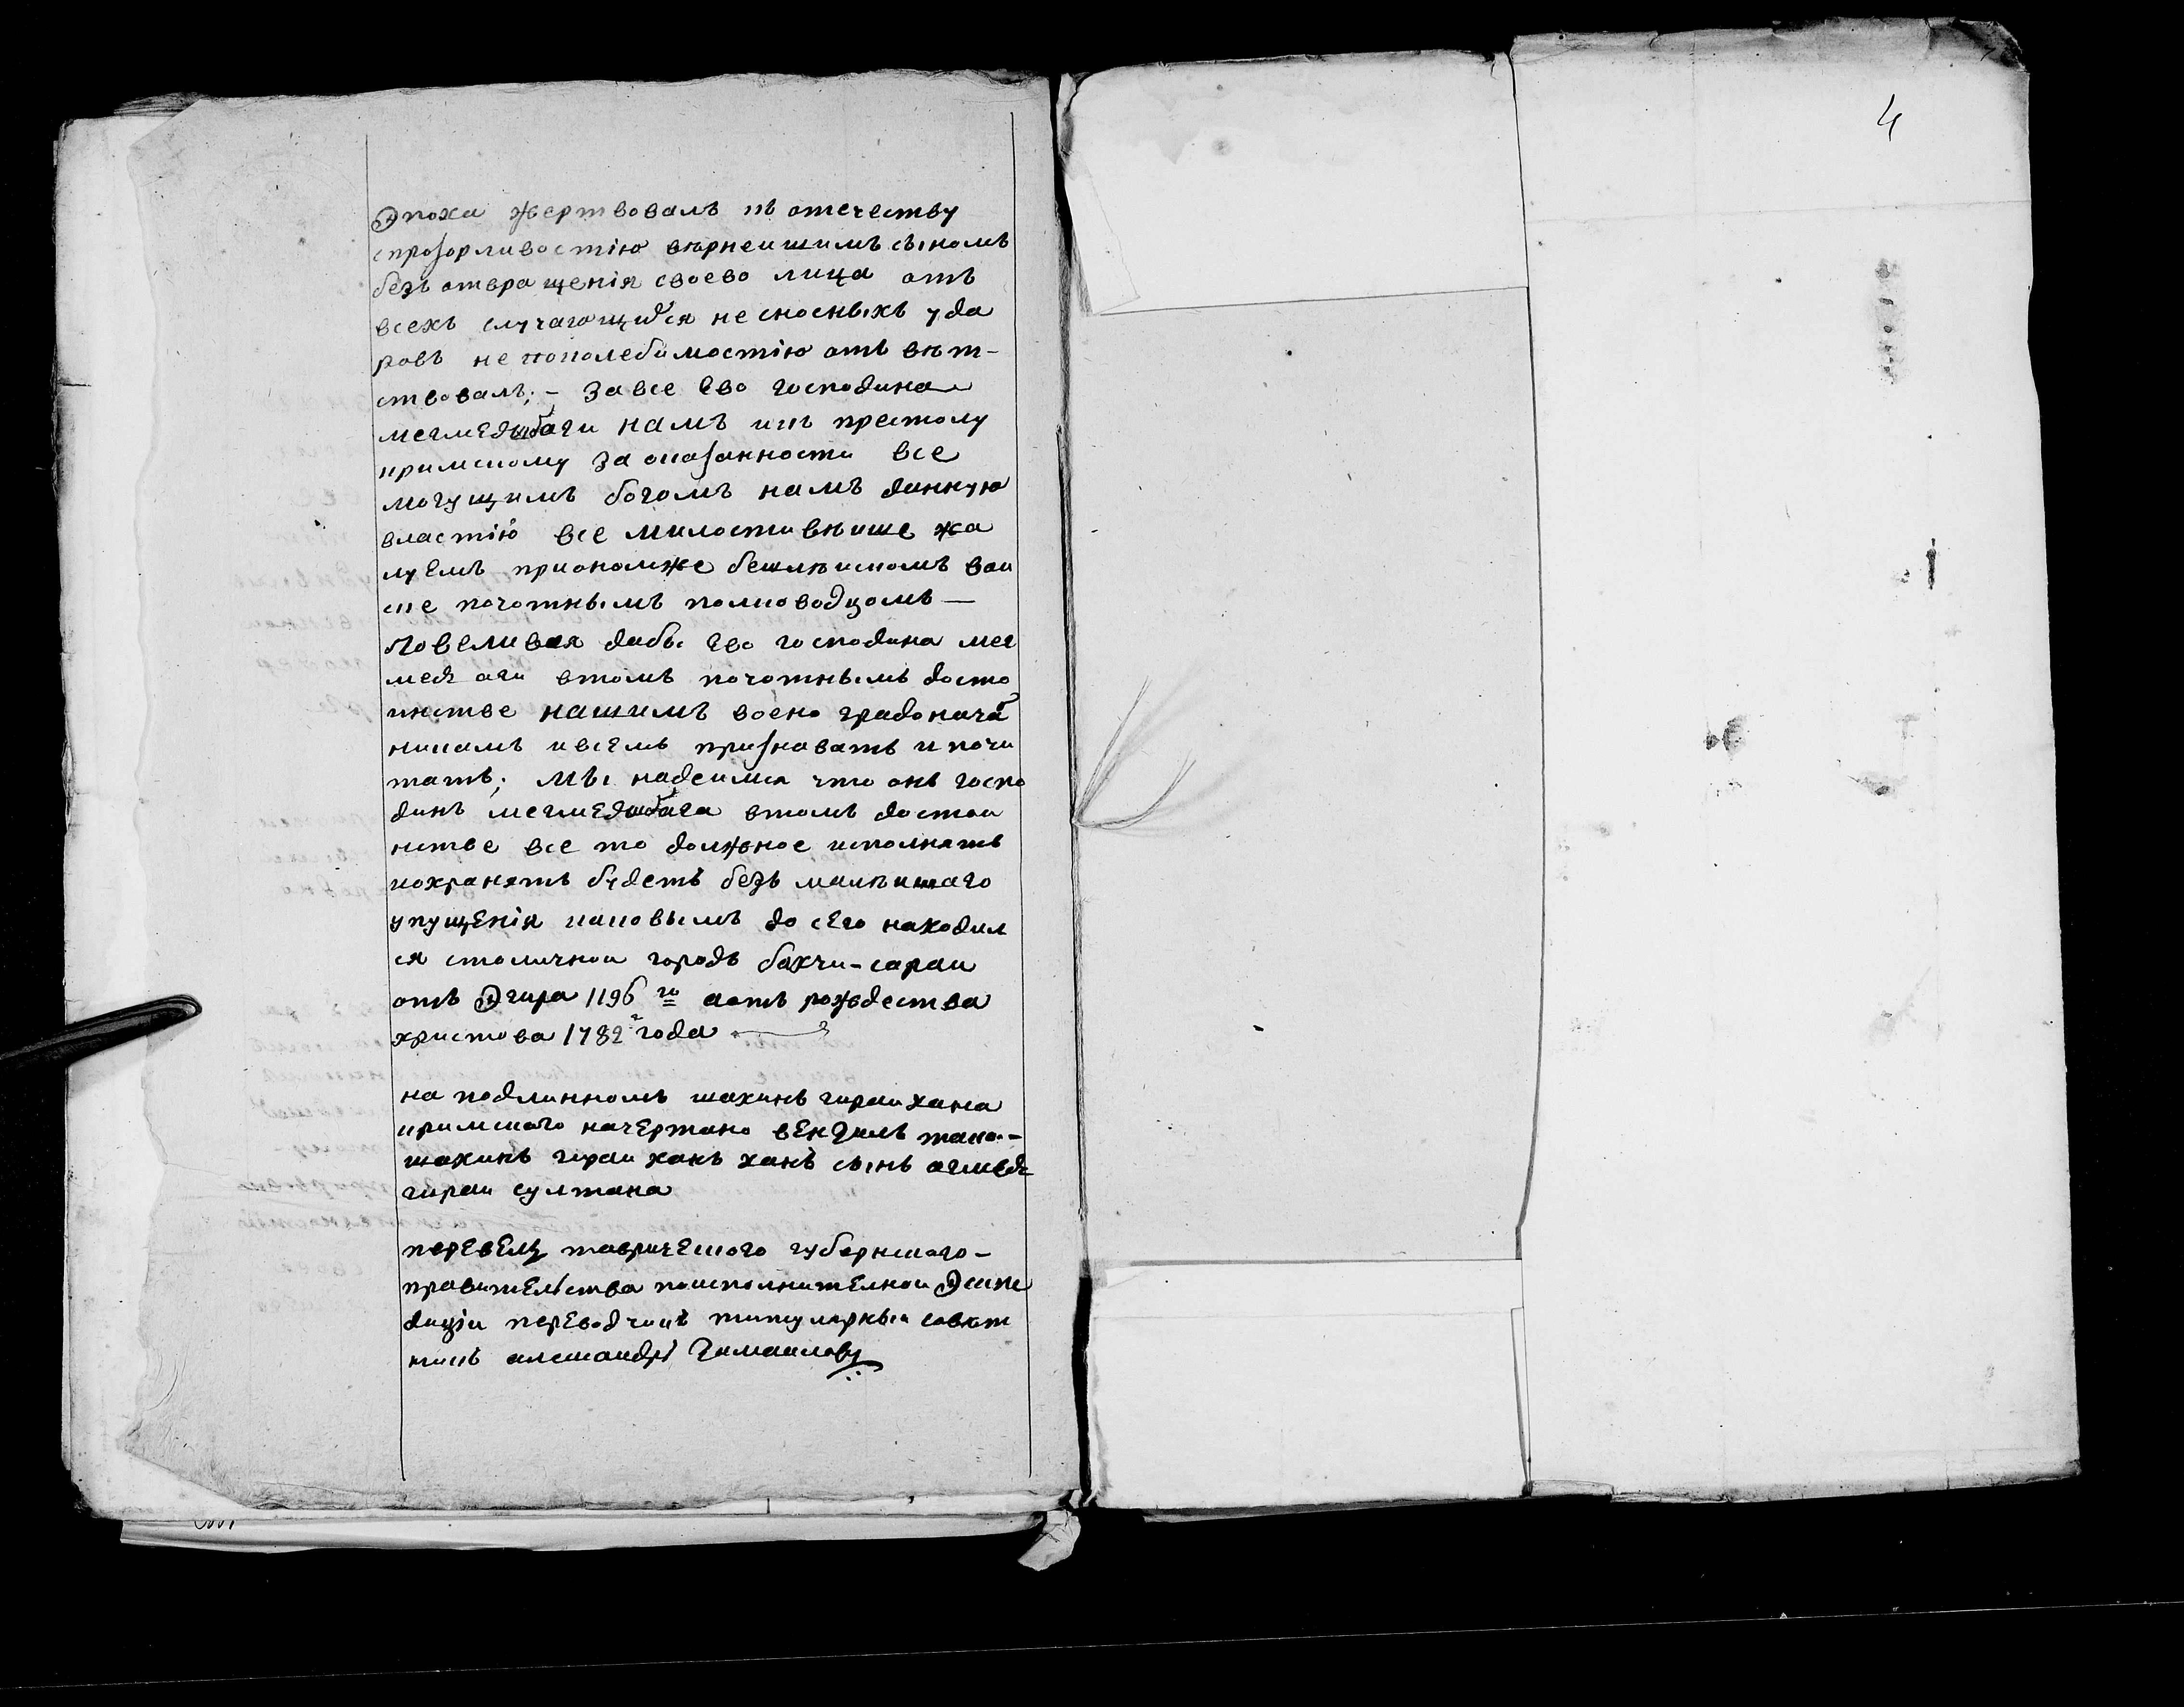 4
Эпоха жертвовалъ къ отечеству
спрозорливостію вѣрнеишимъ сыномъ
безъ отвращенія своево лица отъ
всехъ случающихся несносныхъ уда
ровъ не поколебимостію отъ вѣт-
ствовалъ; – за все Ево господина
мегмедшбаги намъ икъ престолу
крымскому за оказанности все
могущимъ богомъ намъ данную
властію все милостивѣише жа
луемъ приономже бешлѣискомъ вои
ске почотнымъ полководцомъ —
повеливая дабы Ево господина мег
медъ аги втомъ почотнымъ досто
инстве нашимъ воено градонача
никамъ ивсемъ признавать и почи
тать; мы надеимся что онъ госпо
динъ мегмедшбага втомъ достои
нстве все то должное исполнять
иохранять будетъ безъ малѣишаго
упущенія каковымъ до сего находил
ся столичнои городъ бахчи-сараи
отъ Эгира 1196 го аотъ рождества
христова 1782 г года
на подлинномъ шахинъ гираи хана
крымскаго начертано вензиль тако –
шахинъ гираи ханъ ханъ сынъ агмедъ
гираи султана
перевелъ таврическаго губернскаго –
правительства поисполнителнои Экспе
диціи переводчикъ титулярныи совѣт
никъ александръ